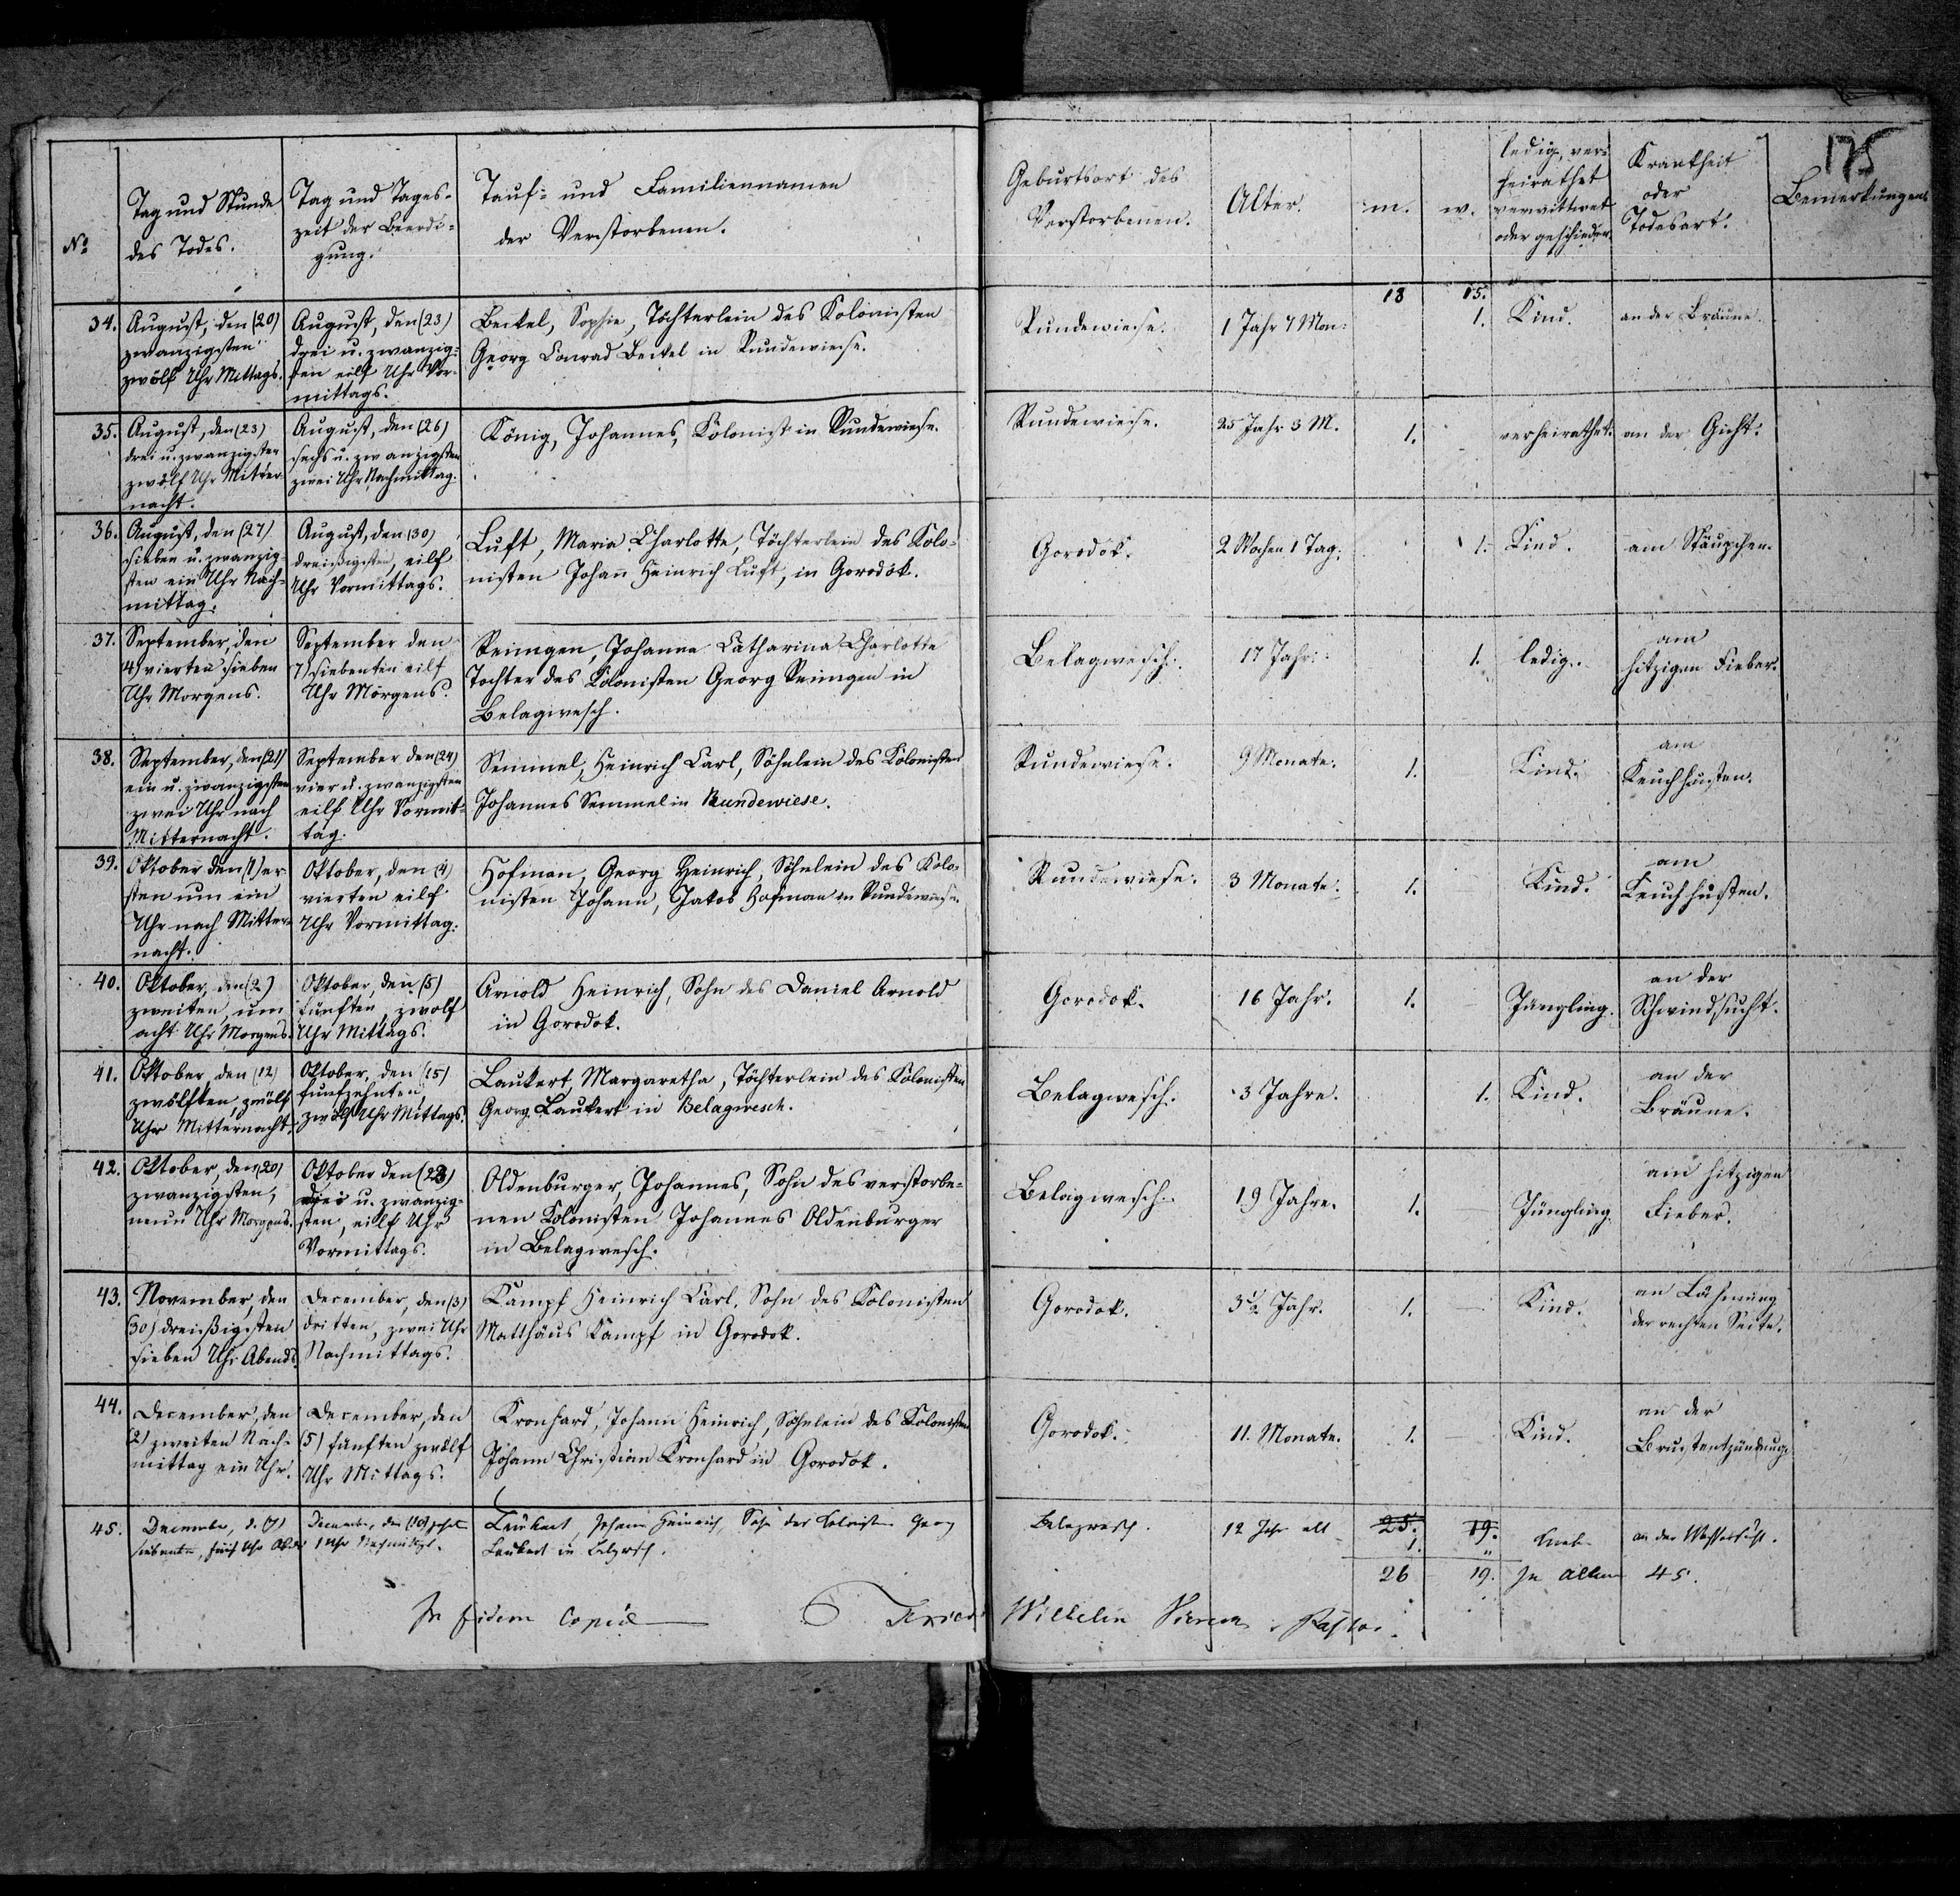 175
No
Tag und Stunde
des Todes.
Tag und Tages-
zeit der Beerdi-
gung.
Tauf- und Familiennamen
der Verstorbenen.
Geburtsort des
Verstorbenen.
Alter.
m.
w.
ledig, ver-
heirathet
verwittwet
oder geschieden
Krankheit
oder
Todesart.
Bemerkungen
18
15.
34.
August, den (20)
zwanzigsten
zwölf Uhr Mittags.
August, den (23)
drei u. zwanzig-
sten eilf Uhr Vor-
mittags.
Beckel, Sophie, Töchterlein des Kolonisten
Georg Conrad Beckel in Rundewiese.
Rundewiese.
1 Jahr 7 Mon:
1.
Kind.
an der Bräune.
35.
August, den (23)
drei u. zwanzigsten
zwölf Uhr Mitter-
nacht.
August, den (26)
sechs u. zwanzigsten
zwei Uhr Nachmittag.
König, Johannes, Kolonist in Rundewiese.
Rundewiese.
25 Jahr 3 M.
1.
verheirathet.
an der Gicht.
36.
August, den (27)
sieben u. zwanzig-
sten ein Uhr Nach-
mittag.
August, den (30)
dreißigsten, eilf
Uhr Vormittags.
Luft, Maria Charlotte, Töchterlein des Kolo-
nisten Johann Heinrich Luft, in Gorodok.
Gorodok.
2 Wochen 1 Tag.
1.
Kind.
am Stäupchen.
37.
September, den
(4) vierten sieben
Uhr Morgens.
September den
(7) siebenten eilf
Uhr Morgens.
Reimgen, Johanna Catharina Charlotte
Tochter des Kolonisten Georg Reimgen in
Belagwesch.
Belagwesch.
17 Jahr.
1.
ledig.
am
hitzigen Fieber.
38.
September, den (21)
ein u. zwanzigsten
zwei Uhr nach
Mitternacht.
September den (24)
vier u. zwanzigsten
eilf Uhr Vormit-
tag.
Semmel, Heinrich Carl, Söhnlein des Kolonisten
Johannes Semmel in Rundewiese.
Rundewiese.
9 Monate.
1.
Kind.
am
Keuchhusten.
39.
Oktober den (1) er-
sten um ein
Uhr nach Mitter-
nacht.
Oktober, den (4)
vierten eilf
Uhr Vormittag.
Hofman, Georg Heinrich, Söhnlein des Kolo-
nisten Johann, Jakob Hofman in Rundewiese.
Rundewiese.
3 Monate.
1.
Kind.
am
Keuchhusten.
40.
Oktober, den (2)
zweiten, um
acht Uhr Morgens.
Oktober, den (5)
fünften, zwölf
Uhr Mittags.
Arnold Heinrich, Sohn des Daniel Arnold
in Gorodok.
Gorodok.
16 Jahr.
1.
Jüngling.
an der
Schwindsucht.
41.
Oktober, den (12)
zwölften, zwölf
Uhr Mitternacht.
Oktober, den (15)
funfzehnten,
zwölf Uhr Mittags.
Laukert, Margaretha, Töchterlein des Kolonisten
Georg Laukert in Belagwesch.
Belagwesch.
3 Jahre.
1.
Kind.
an der
Bräune.
42.
Oktober, den (20)
zwanzigsten,
neun Uhr Morgens.
Oktober den (23)
drei u. zwanzig-
sten, eilf Uhr
Vormittags.
Oldenburger, Johannes, Sohn des verstorbe-
nen Kolonisten Johannes Oldenburger
in Belagwesch.
Belagwesch.
19 Jahre.
1.
Jüngling.
am hitzigen
Fieber.
43.
November, den
(30) dreißigsten
sieben Uhr Abends.
December, den (3)
dritten, zwei Uhr
Nachmittags.
Kampf Heinrich Carl, Sohn des Kolonisten
Matthäus Kampf in Gorodok.
Gorodok.
3½ Jahr.
1.
Kind.
an Lähmung
der rechten Seite.
44.
December, den
(2) zweiten Nach-
mittag ein Uhr.
December, den
(5) fünften zwölf
Uhr Mittags.
Kronhard, Johann Heinrich, Söhnlein des Kolonisten
Johann Christian Kronhard in Gorodok.
Gorodok.
11. Monate.
1.
Kind.
an der
Brustentzündung.
45.
December, d. (7)
siebenten, fünf Uhr Abds
December, den (10) zehnt
1 Uhr Nachmittgs.
Laukert, Johann Heinrich, Sohn des Kolonisten Georg
Laukert in Belagwesch.
Belagwesch.
12 Jahr alt
25.
1.
19.
"
Knabe
an der Wassersucht.
26
19.
In Allem 45.
In fidem copiae Wilhelm Pastor.